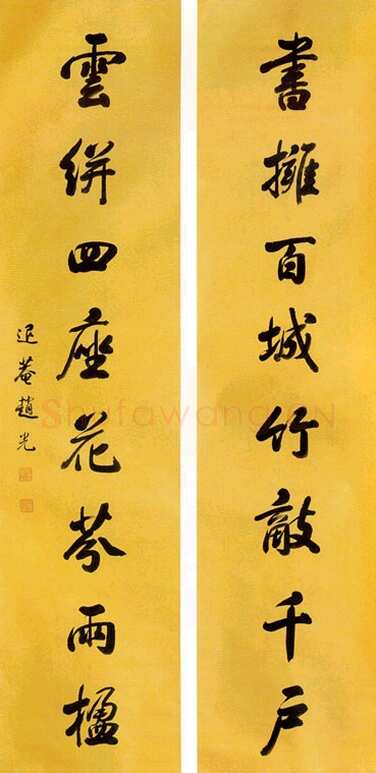 書擁百城竹敲千户
雲絣四座花芬兩楹
退菴趙光
Shufawang.CN